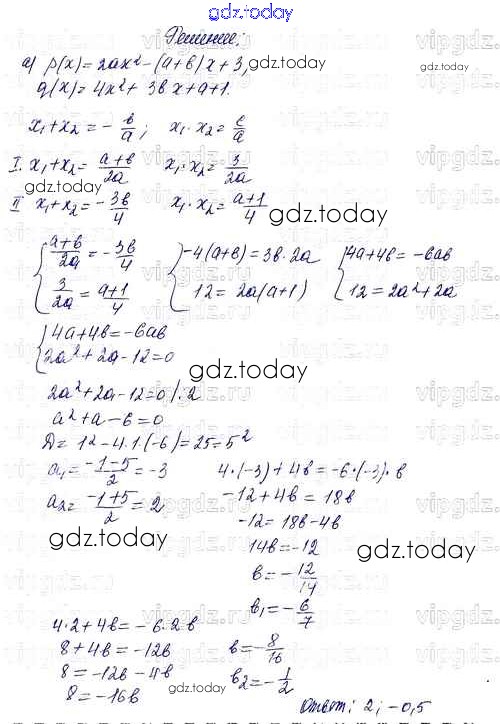 gdz.today
Решение:
а) p(x)=2ax²-(a+b)x+3,
q(x)=4x²+3bx+a+1.
x₁+x₂=-b/a; x₁·x₂=c/a
I. x₁+x₂=(a+b)/2a x₁·x₂=3/2a
gdz.today
II x₁+x₂=-3b/4 x₁·x₂=(a+1)/4
gdz.today
{(a+b)/2a=-3b/4 {-4(a+b)=3b·2a {4a+4b=-6ab
{3/2a=(a+1)/4 {12=2a(a+1) {12=2a²+2a
{4a+4b=-6ab
{2a²+2a-12=0
gdz.today
2a²+2a-12=0 /:2
a²+a-6=0
D=1²-4·1·(-6)=25=5²
a₁=(-1-5)/2=-3 4·(-3)+4b=-6·(-3)·b
a₂=(-1+5)/2=2 -12+4b=18b
-12=18b-4b
gdz.today
14b=-12
gdz.today
b=-12/14
b₁=-6/7
4·2+4b=-6·2b
8+4b=-12b b=-8/16
8=-12b-4b b₂=-1/2
gdz.today
8=-16b
Ответ: 2; -0,5